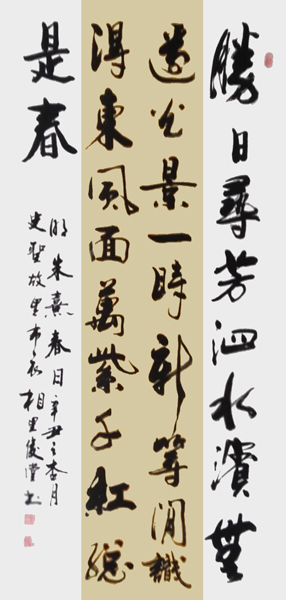 勝日尋芳泗水濱無
邊光景一時新等閒識
得東風面萬紫千紅總
是春
朱熹春日辛丑之杏月
史聖故里布衣相里俊书